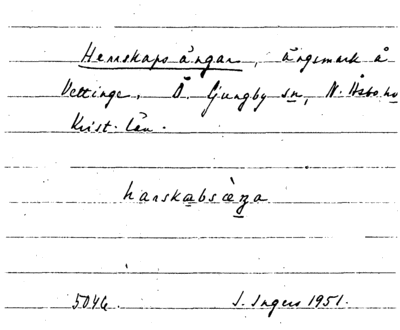 Herrskapsängar, ängsmark å
Vettinge, Ö. Ljungby sn, N. Åsbo hd
Krist. län.
harskabsèŋa
5046. I. Ingers 1951.